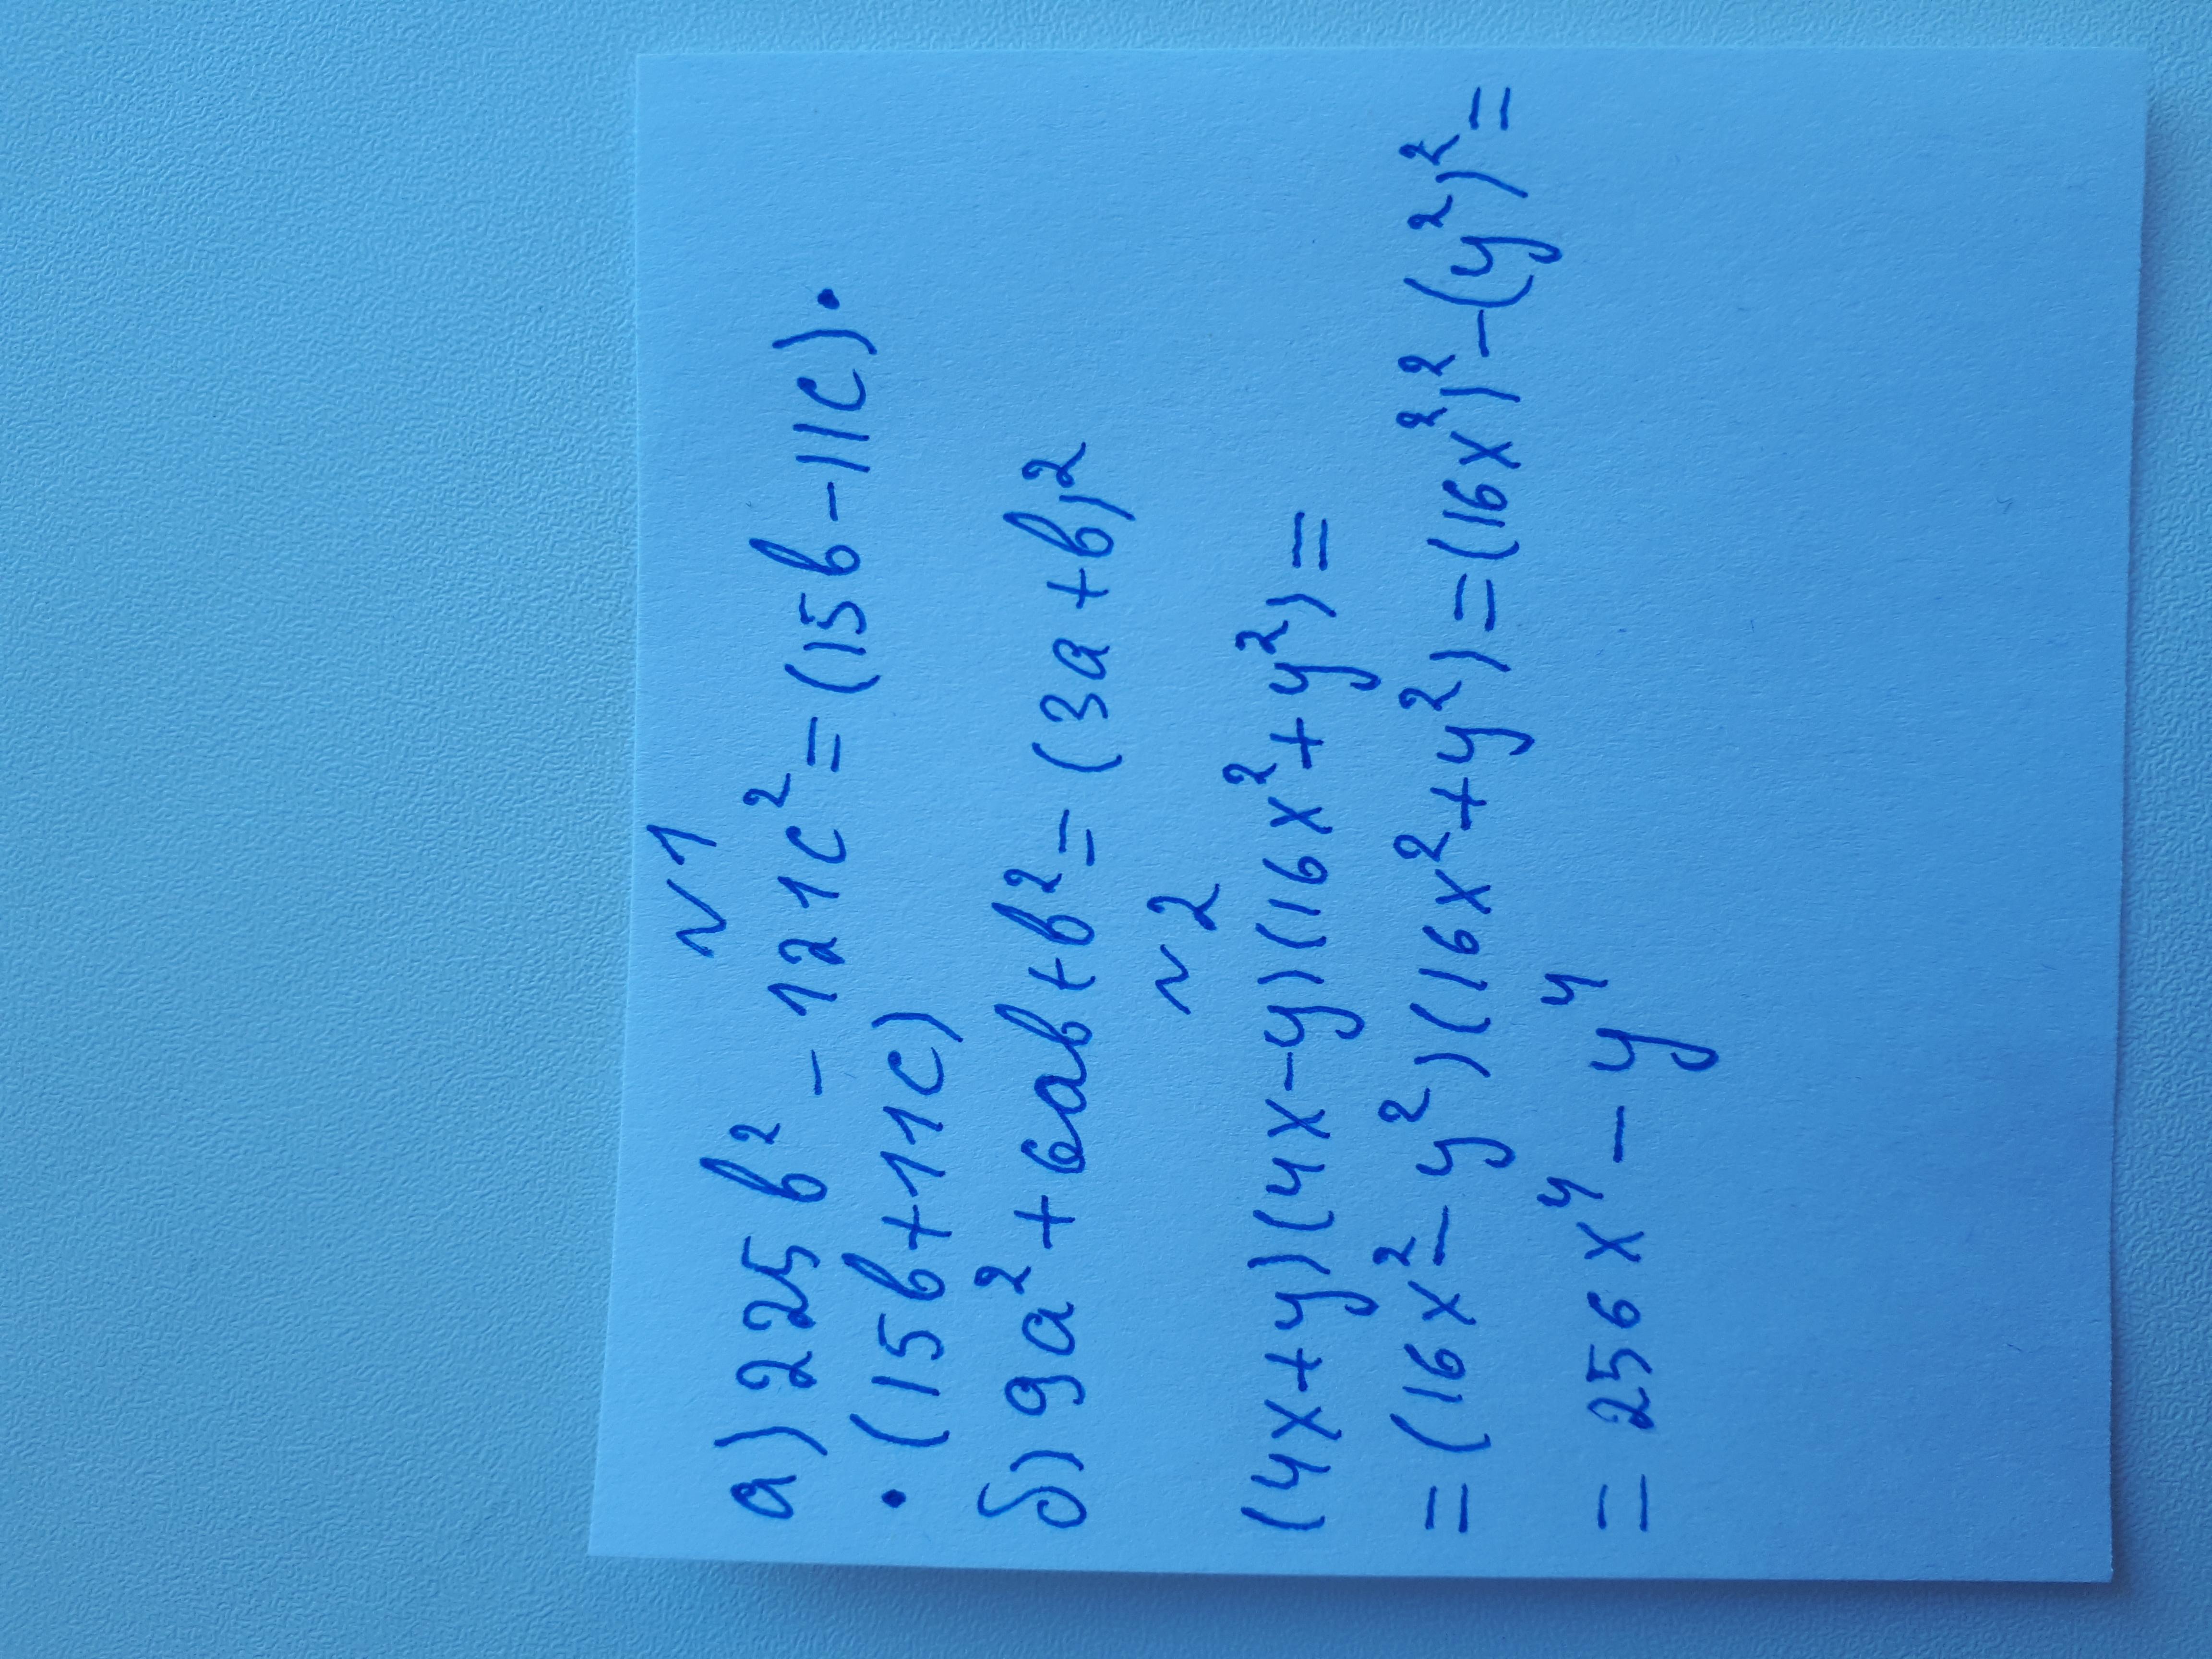 N1
а) 225b² - 121c² = (15b - 11c) ·
· (15b + 11c)
б) 9a² + 6ab + b² = (3a + b)²
N2
(4x + y)(4x - y)(16x² + y²) =
= (16x² - y²)(16x² + y²) = (16x²)² - (y²)² =
= 256x⁴ - y⁴